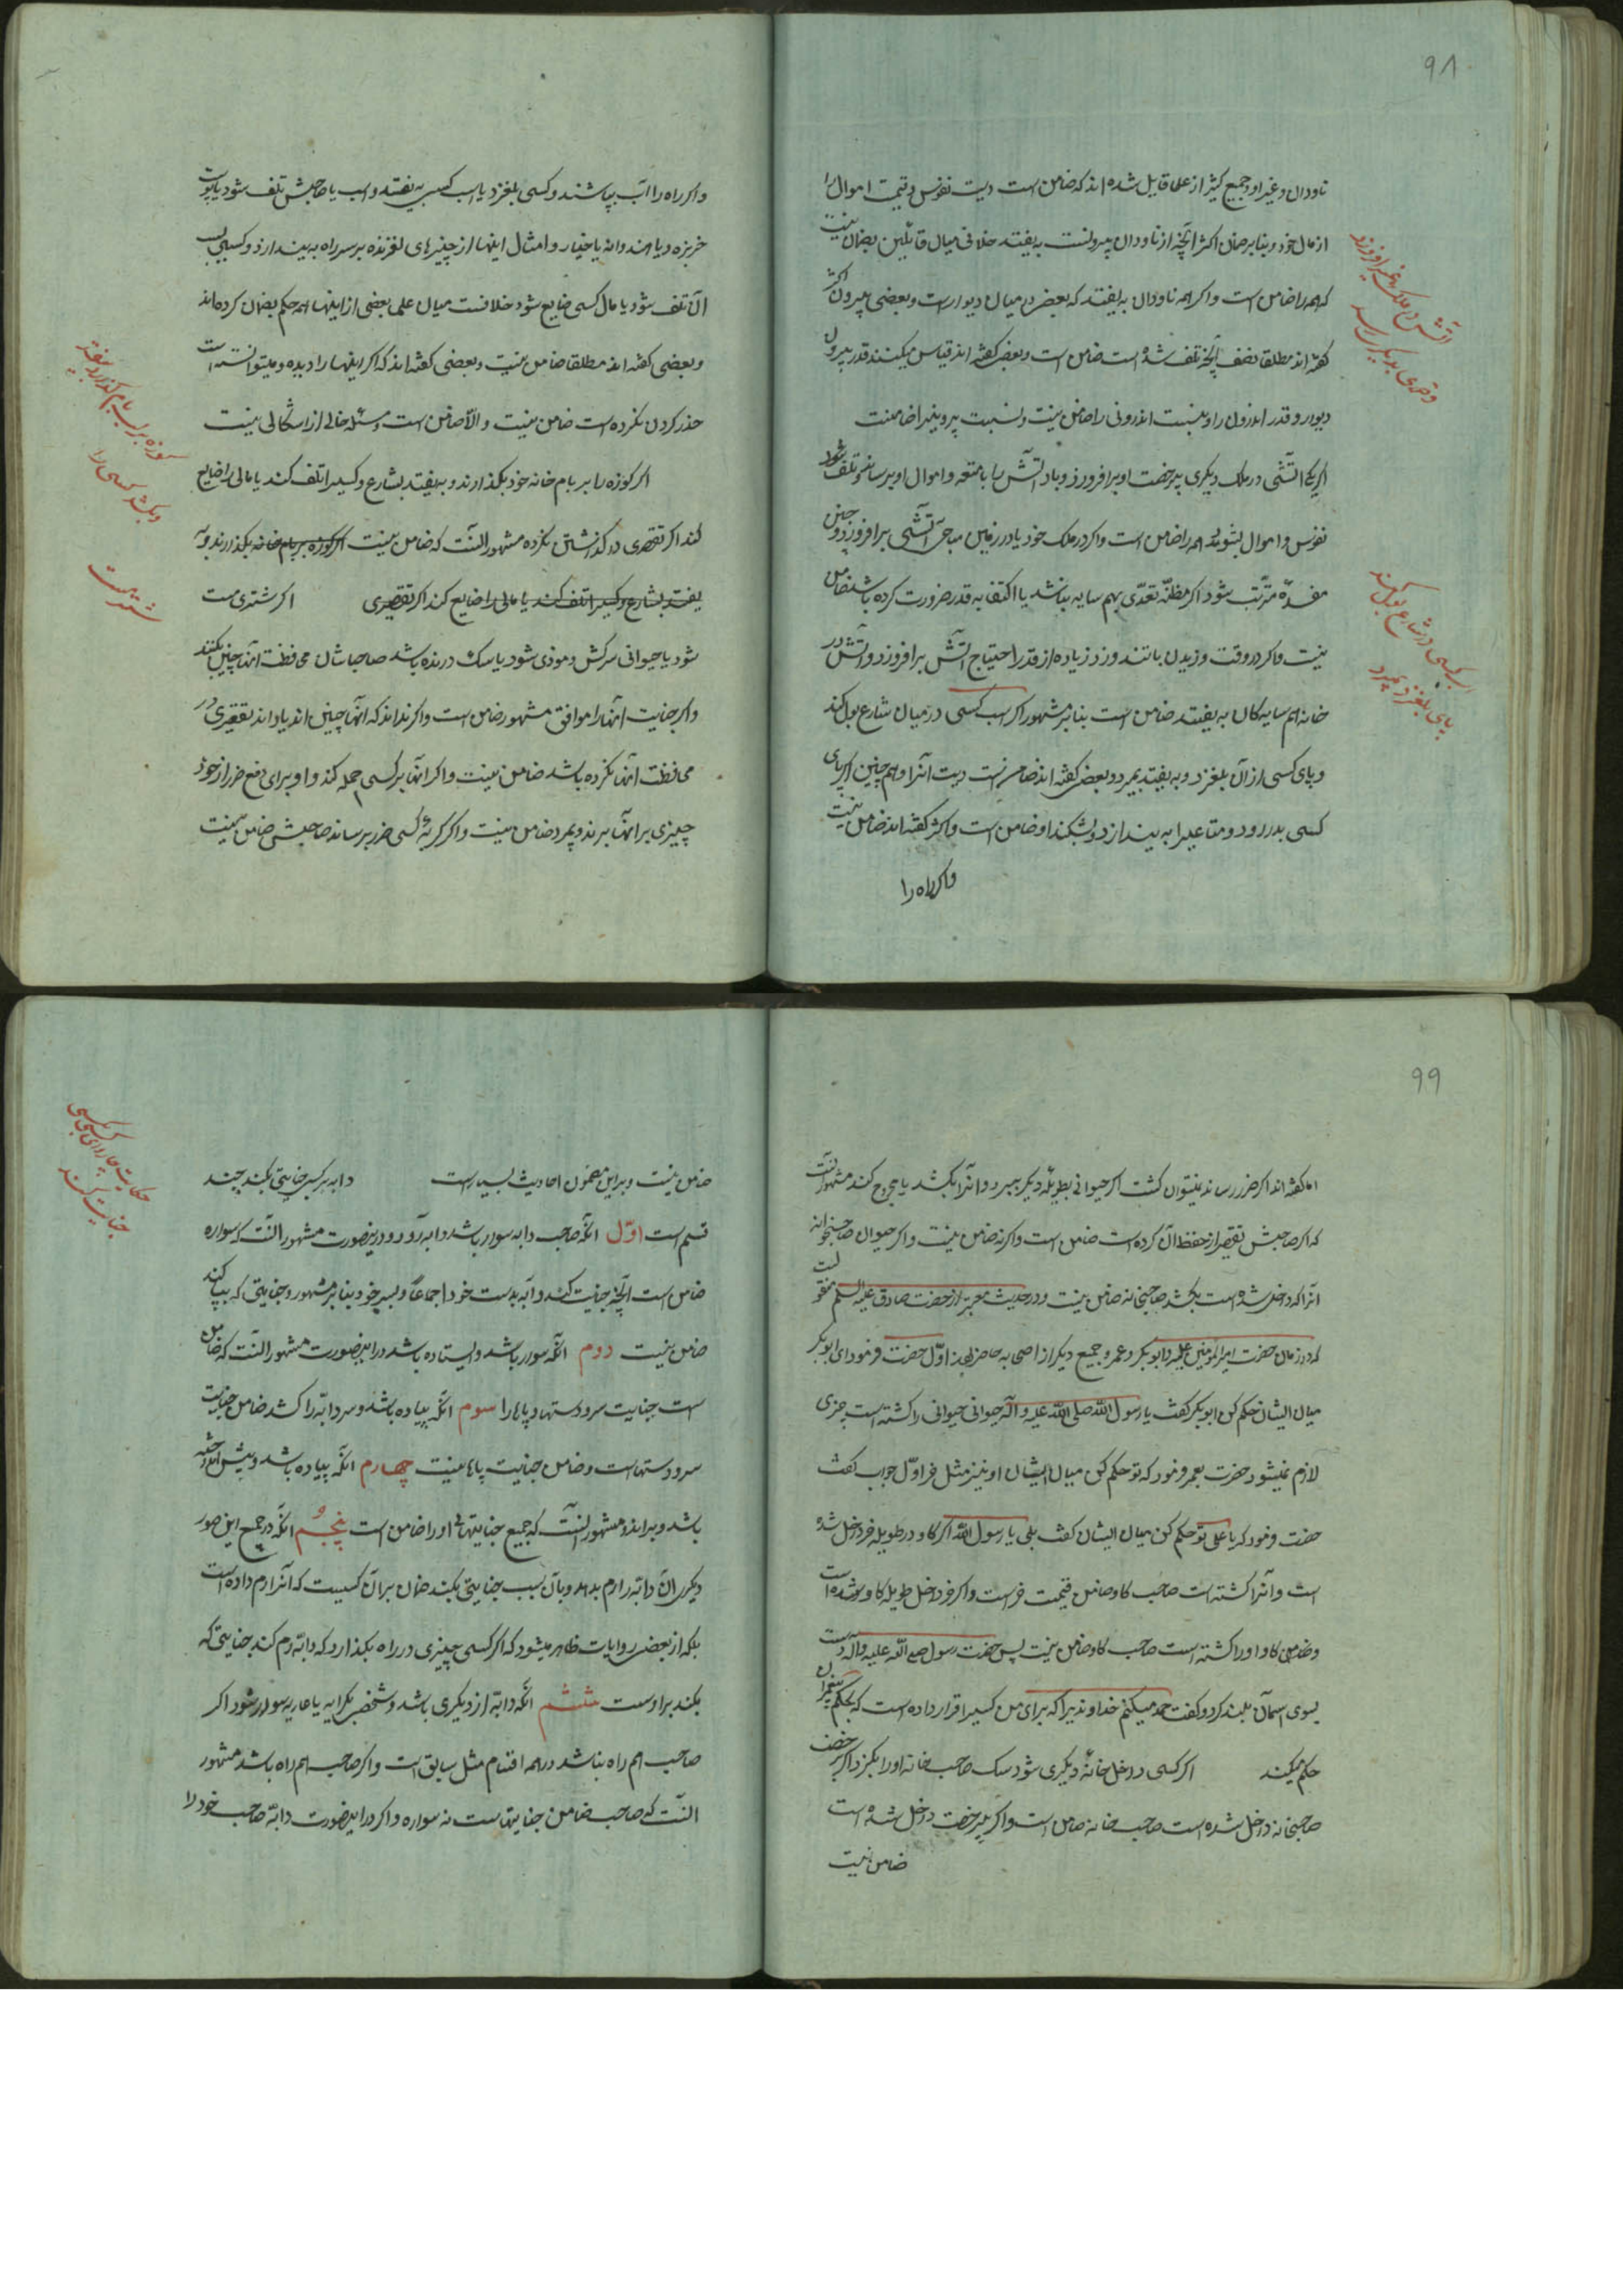 ۹۸
ناودان و غیر او و جمیع کثیر از علما قایل شده‌اند که ضامن است دیت نفوس و قیمت اموال را
از مال خود و بنابر ضمان اکثر آنچه از ناودان بیرونست بیفتد خلافی میان قائلین بضمان نیست
که همه را ضامن است و اگر همه ناودان به بیفتد که بعضی در میان دیوار است و بعضی بیرون اکثر
گفته‌اند مطلقا نصف آنچه تلف شده است ضامن است و بعضی گفته‌اند قیاس میکنند قدر بیرون
دیوار و قدر اندرون را و بنسبت اندرونی را ضامن نیست و بنسبت بیرونی را ضامنست
اگر یکی آتشی در ملک دیگری بی رخصت او برافروزد و باد آتش را بامتعه و اموال او برساند و تلف شود
نفوس و اموال بشوند همه را ضامن است و اگر در ملک خود یا در زمین مباحی آتشی برافروزد و چنین
مفسده مترتب شود اگر مظنّه تعدّی بهم سایه نباشد یا اکتفا به قدر ضرورت کرده باشد ضامن
نیست و اگر در وقت وزیدن باد تند و زیاده از قدر احتیاج آتش برافروزد و آتش در
خانه هم سایه کان به بیفتد ضامن است بنابر مشهور اگر اسب کسی در میان شارع بول کند
و پای کسی از آن بلغزد و به بیفتد بمیرد و بعضی گفته‌اند ضامن است دیت آنرا و هم چنین اگر پای
کسی بدر رود و متاعیرا به بیندازد و بشکند او ضامن است و اکثر گفته‌اند ضامن نیست
و اگر راه را
آتش در ملک غیر افروزد
و ضرری بدیگری رسد
اسب کسی در شارع بول کند
پای بلغزد بمیرد
و اگر راه را آب بپاشند و کسی بلغزد یا اسب کسی به بیفتد و اسب یا صاحبش تلف شود یا پوست
خربزه و یا هندوانه یا خیار و امثال اینها از چیزهای لغزنده بر سر راه به بیندازد و کسی بسبب
آن تلف شود یا مال کسی ضایع شود خلافست میان علما بعضی از اینها همه حکم بضمان کرده‌اند
و بعضی گفته‌اند مطلقا ضامن نیست و بعضی گفته‌اند که اگر اینها را دیده و میتوانسته است
حذر کردن نکرده است ضامن نیست و الّا ضامن است و مسئله خالی از اشکالی نیست
اگر کوزه را بر بام خانه خود بگذارند و به بیفتد بشارع و کسیرا تلف کند یا مالی را ضایع
کند اگر تقصیری در گذاشتن نکرده مشهور آنست که ضامن نیست اگر کوزه بر بام خانه بگذارند و به
بیفتد بشارع و کسیرا تلف کند یا مالی را ضایع کند اگر تقصیری اگر شتری مست
شود یا حیوانی سرکش و موذی شود یا سک درنده باشد صاحبانشان محافظت آنها چنین نکنند
و اگر جنایت آنها را موافق مشهور ضامن است و اگر نداند که آنها چنین‌اند یا داند تقصیری در
محافظت آنها نکرده باشد ضامن نیست و اگر آنها بر کسی حمله کند و او برای دفع ضرر از خود
چیزی بر آنها بزند و بمیرد ضامن نیست و اگر گربهٔ کسی ضرر برساند صاحبش ضامن نیست
کوزه بر لب بام گذارد بیفتد
و بکشد کسی را
شتر مست
۹۹
اما گفته‌اند اگر ضرر رساند میتوان کشت اگر حیوانی بطویلهٔ دیگر ببرد و آنرا بکشد یا مجروح کند مشهور آنست
که اگر صاحبش تقصیر از حفظ آن کرده است ضامن است و اگر نه ضامن نیست و اگر حیوان صاحبخانه
آنرا که داخل شده است بکشد صاحبخانه ضامن نیست و در حدیث معتبر از حضرت صادق علیه السلم منقولست
که در زمان حضرت امیرالمؤمنین علیه و ابو بکر و عمر و جمیع دیگر از اصحابه حاضر بودند اوّل حضرت فرمود ای ابو بکر
میان ایشان حکم کن ابو بکر گفت یا رسول الله صلی الله علیه و آله حیوانی حیوانی را کشته است چیزی
لازم نمیشود حضرت بعمر فرمود که تو حکم کن میان ایشان او نیز مثل خر اوّل جواب گفت
حضرت فرمود که یا علی تو حکم کن میان ایشان گفت بلی یا رسول الله اگر گاو در طویله خر داخل شده
است و آنرا کشته است صاحب گاو ضامن قیمت خر است و اگر خر داخل طویله گاو شده است
گاو او را کشته است صاحب گاو ضامن نیست پس حضرت رسول صلی الله علیه و آله دست
بسوی آسمان بلند کرد و گفت حمد میکنم خداوندیرا که برای من کسیرا قرار داده است که بحکم پیغمبران
حکم میکند اگر کسی داخل خانهٔ دیگری شود سک صاحب خانه او را بگزد اگر برخصت
صاحبخانه داخل شده است صاحب خانه ضامن است و اگر بی رخصت داخل شده است
ضامن نیست
ضامن نیست و براین مضمون احادیث بسیار است دابه بر کسی جنایتی بکند چند
قسم است اوّل آنکه صاحب دابه سوار باشد و دابه رود در ینصورت مشهور آنست که سواره
ضامن است آنچه جنایت کند دابه بدست خود اجماعاً و بسر خود بنابر مشهور و جنایتی که بپا کند
ضامن نیست دوم آنکه سوار باشد و ایستاده باشد در اینصورت مشهور آنست که ضامن
است جنایت سر و دستها و پاها را سوم آنکه پیاده باشد و سر دابّه را کشد ضامن جنایت
سر و دستهاست و ضامن جنایت پاها نیست چهارم آنکه پیاده باشد و پیش انداخته
باشد و براند و مشهور آنست که جمیع جنایتهای او را ضامن است پنجم آنکه در جمیع این صور
دیگری آن دابّه را رم بدهد و بآن سبب جنایتی بکند ضمان بر آن کسیست که آنرا رم داده است
بلکه از بعضی روایات ظاهر میشود که اگر کسی چیزی در راه بگذارد که دابّه رم کند جنایتی که
بکند بر اوست ششم آنکه دابّه از دیگری باشد و شخصی بکرایه یا عاریه سوار شود اگر
صاحب هم راه نباشد در همه اقسام مثل سابق است و اگر صاحب هم راه باشد مشهور
آنست که صاحب ضامن جنایتهاست نه سواره و اگر در اینصورت دابّه صاحب خود را
حکایت چارپای کسی
جنایت کند